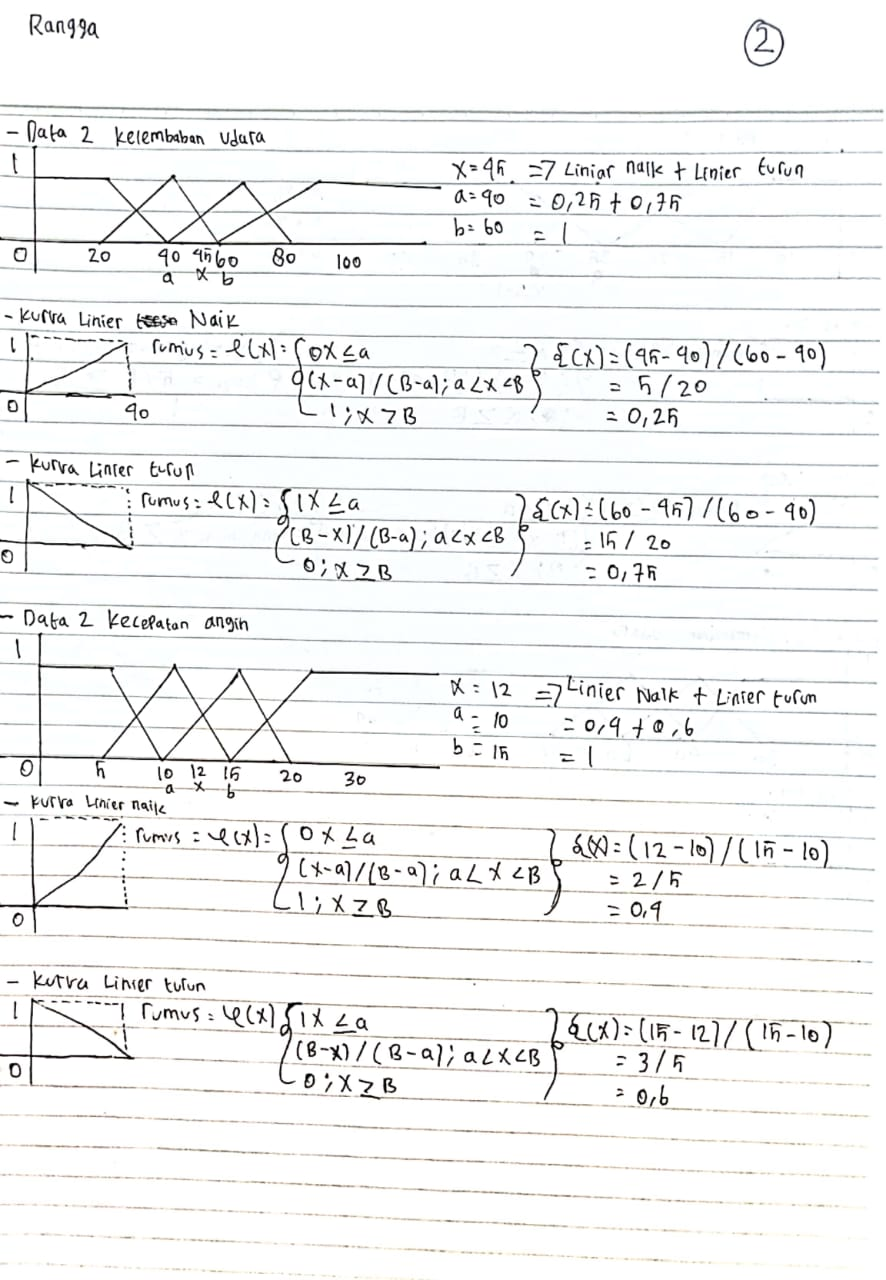 Rangga
2
- Data 2 Kelembaban Udara
1
0 20 40 45 60 80 100
a x b
x = 45 => Liniar naik + Linier turun
a = 40 = 0,25 + 0,75
b = 60 = 1
- Kurva Linier Naik
1
0 40
rumus = f(x) = { 0 x ≤ a
(x-a) / (B-a); a < x < B
1; x > B
f(x) = (45-40) / (60-40)
= 5/20
= 0,25
- Kurva Linier turun
1
0
rumus = f(x) = { 1 x ≤ a
(B-x) / (B-a); a < x < B
0; x ≥ B
f(x) = (60-45) / (60-40)
= 15/20
= 0,75
- Data 2 Kecepatan angin
1
0 5 10 12 15 20 30
a x b
x = 12 => Linier Naik + Linier turun
a = 10 = 0,4 + 0,6
b = 15 = 1
- Kurva Linier naik
1
0
rumus = f(x) = { 0 x ≤ a
(x-a) / (B-a); a < x < B
1; x ≥ B
f(x) = (12-10) / (15-10)
= 2/5
= 0,4
- Kurva Linier turun
1
0
rumus = f(x) { 1 x ≤ a
(B-x) / (B-a); a < x < B
0; x ≥ B
f(x) = (15-12) / (15-10)
= 3/5
= 0,6